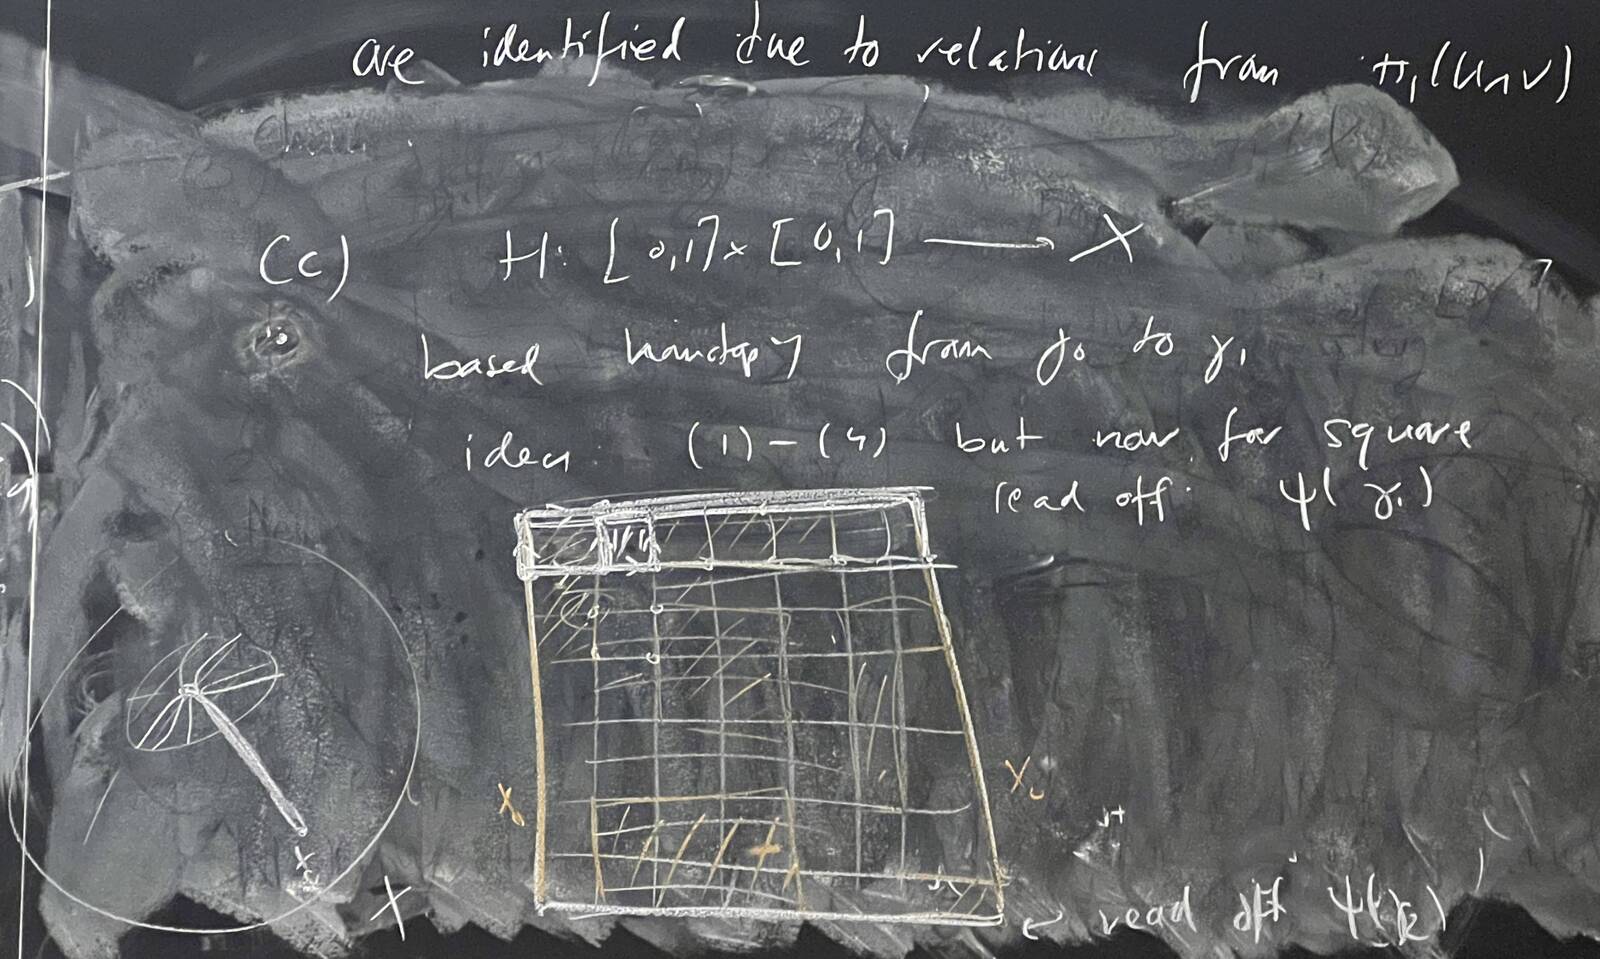 are identified due to relations from π₁(U∩V)
(c) H: [0,1]×[0,1] ⟶ X
based homotopy from γ₀ to γ₁
idea (1)-(4) but now for square
read off: ψ(γ₁)
x₀
x₀
x₀
X
← read off ψ(